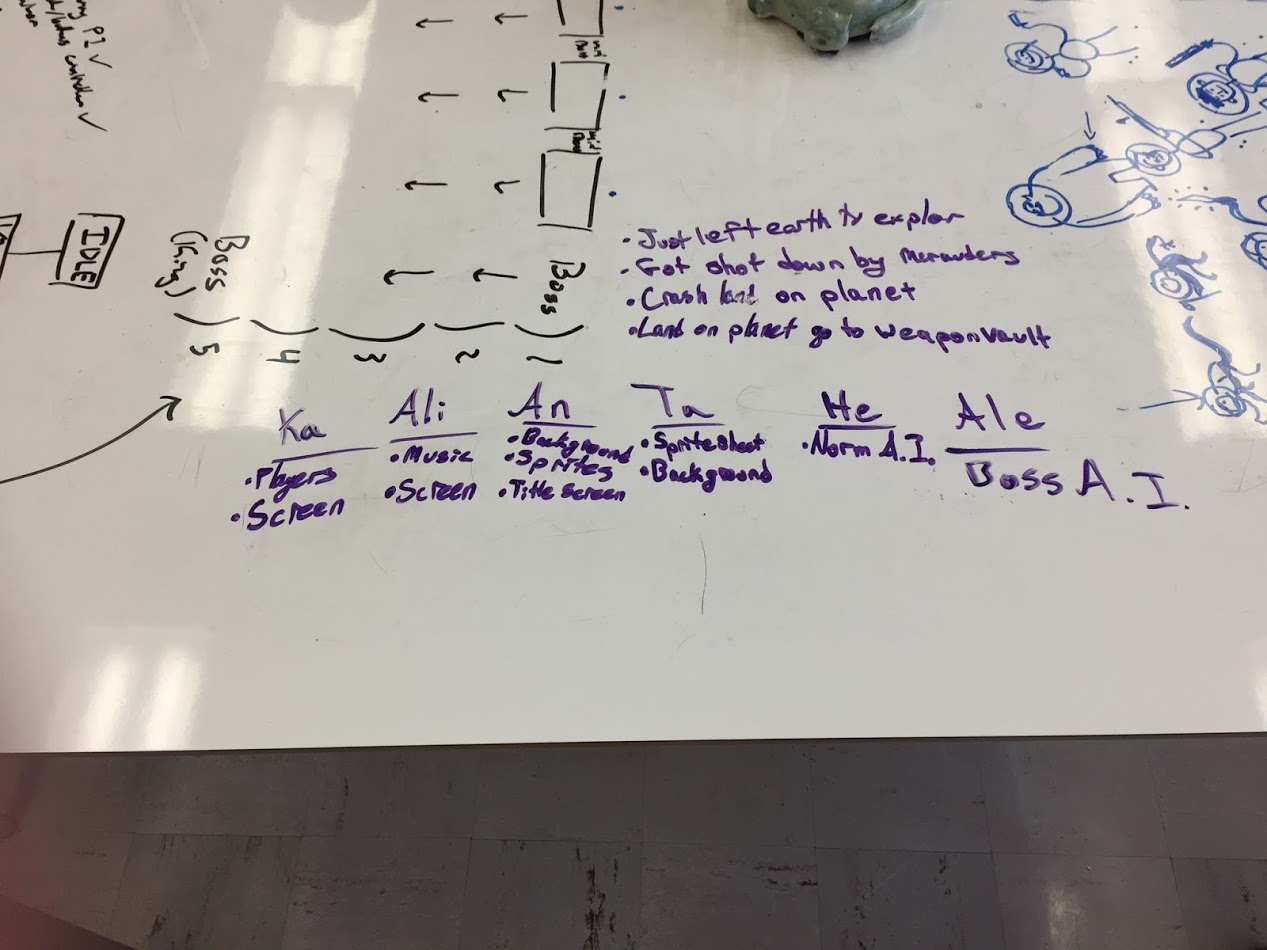 P1 ✓
IDLE
mini
Boss
mini
Boss
Boss
(King)
Boss
5
4
3
2
1
• Just left earth to explor
• Got shot down by Marauders
• Crash land on planet
• Land on planet go to weapon vault
Ka
• Players
• Screen
Ali
• Music
• Screen
An
• Background
• Sprites
• Title Screen
Ta
• Spritesheet
• Background
He
• Norm A.I.
Ale
Boss A.I.